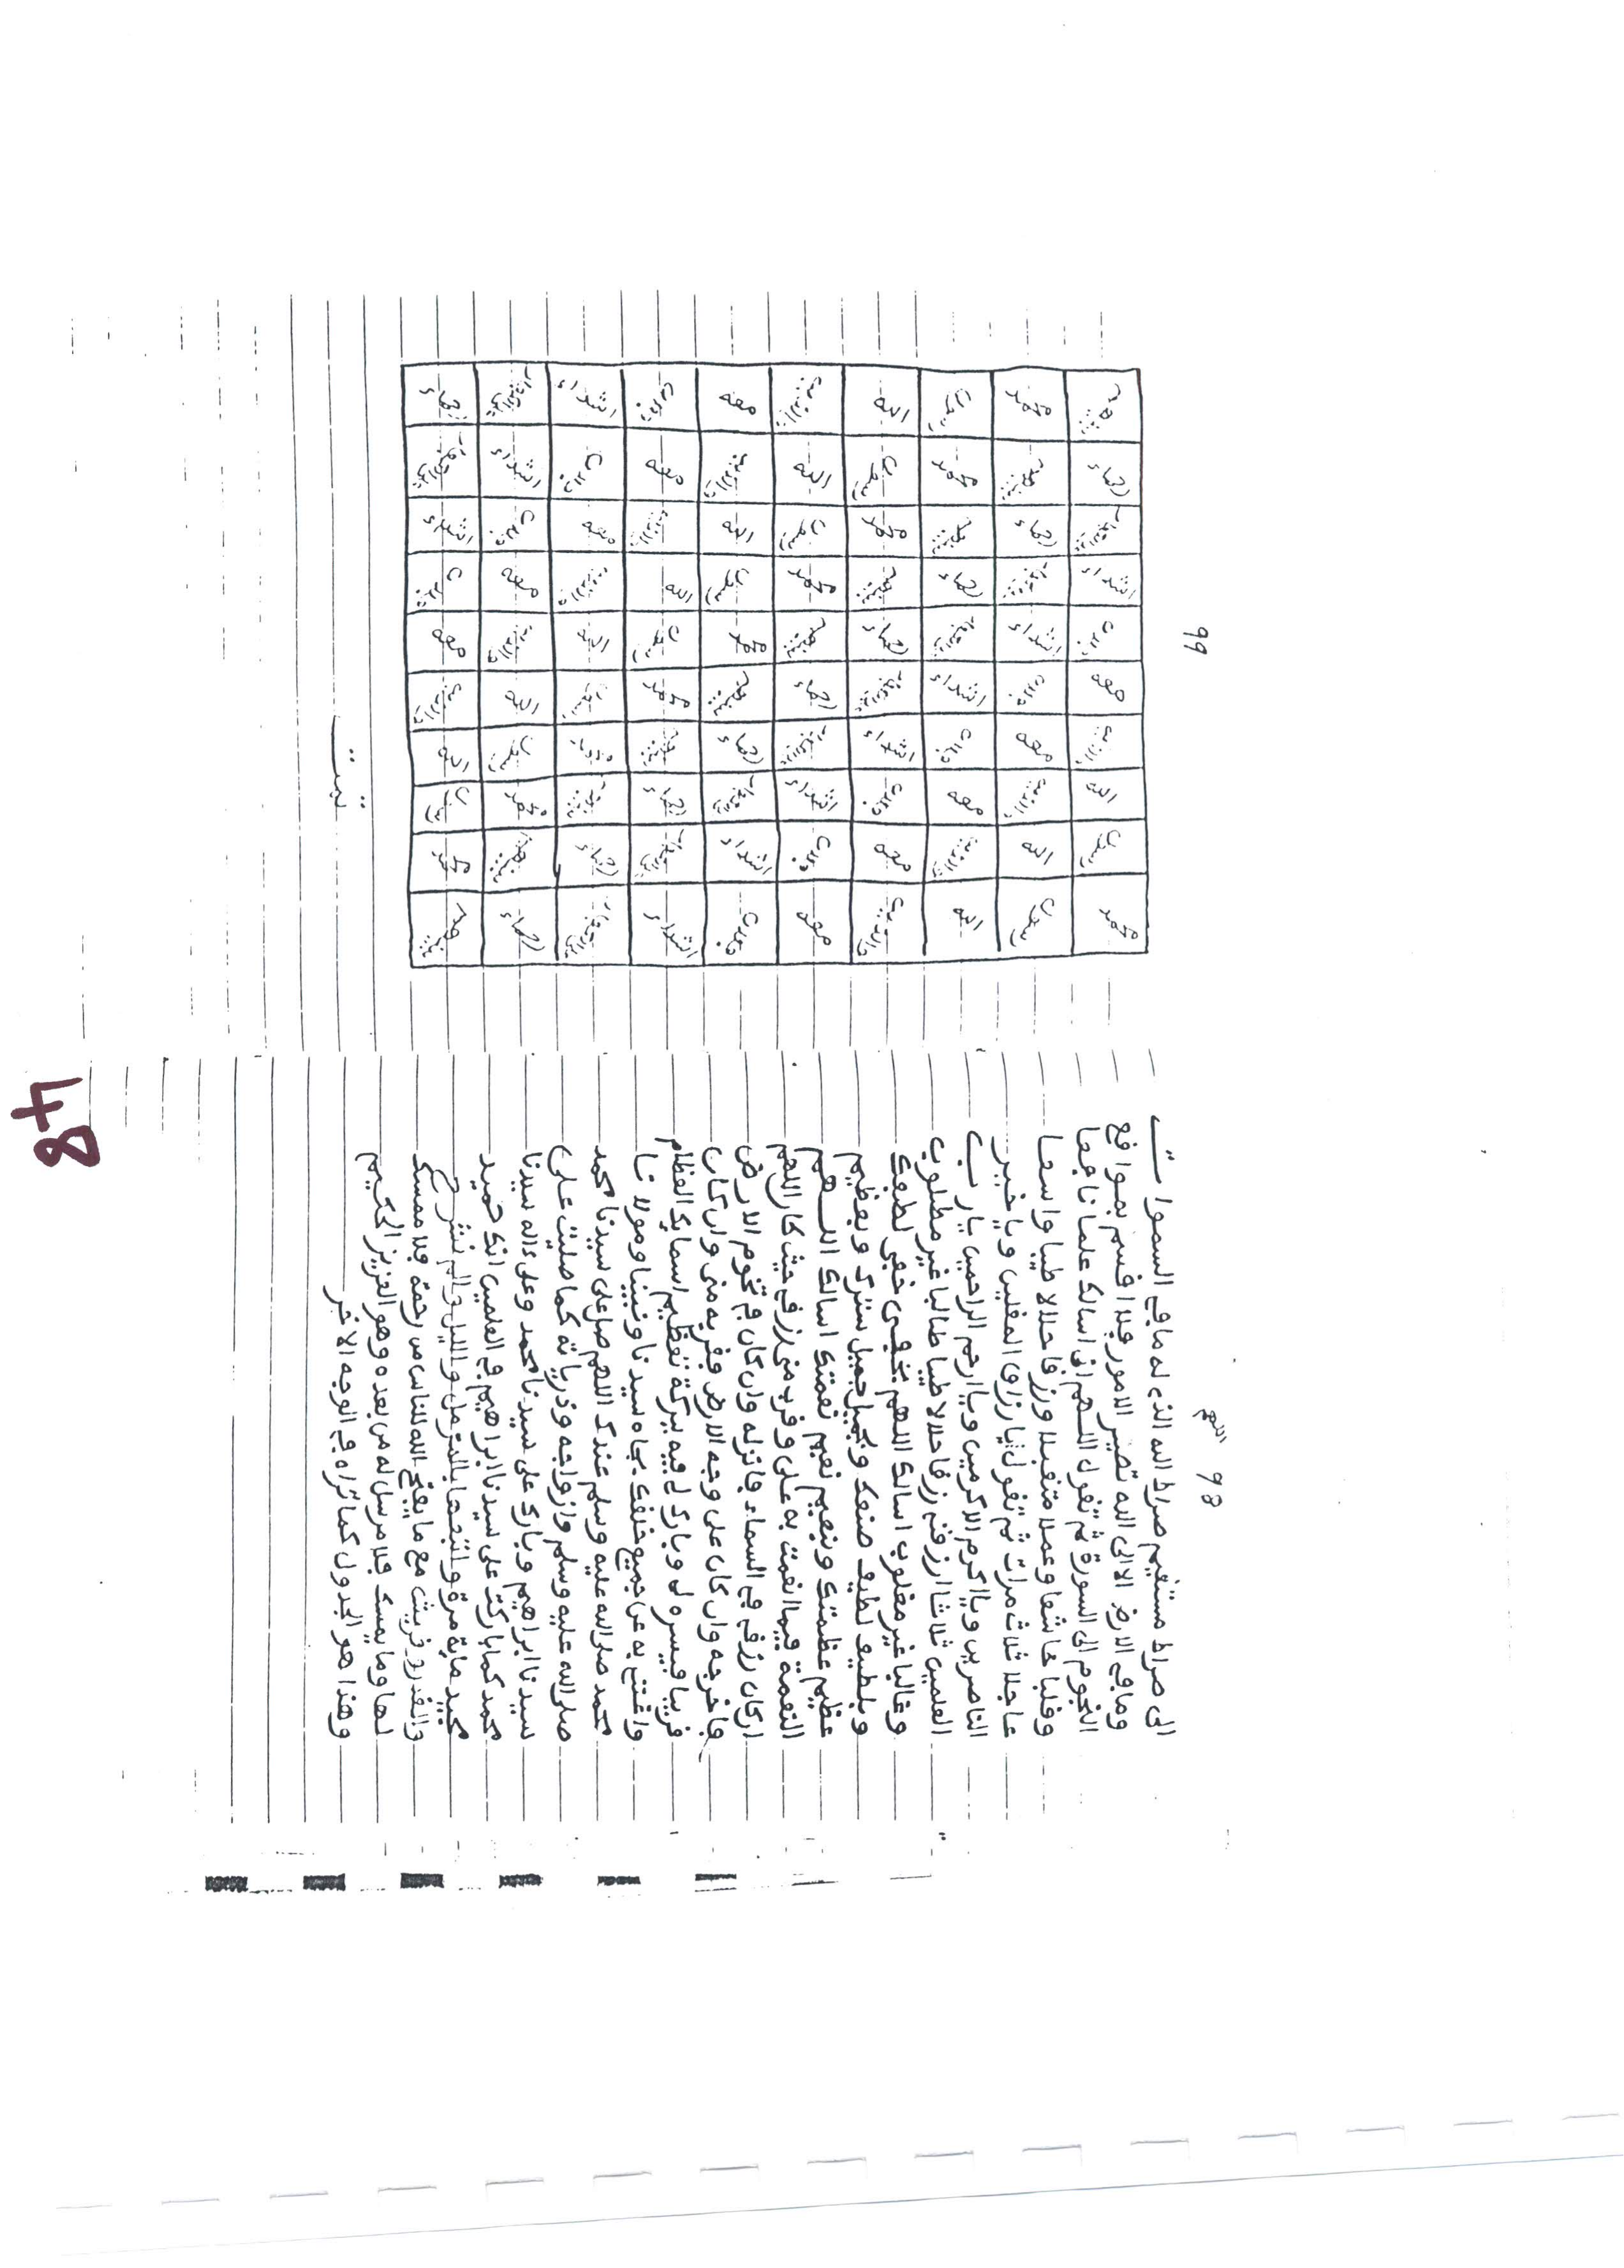 98
الى صراط مستقيم صراط الله الذي له ما في السموات
وما في الارض الا الى الله تصير الامور فلا اقسم بمواقع
النجوم الى السورة ثم تقول اللهم انى اسالك علما نافعا
وقلبا خاشعا وعملا متقبلا ورزقا حلالا طيبا واسعا
عاجلا ثلاث مرات ثم تقول يا رزاق المقلين ويا خير
الناصرين ويا اكرم الاكرمين ويا ارحم الراحمين يا رب
العلمين ثلاثا ارزقني رزقا حلالا طيبا طالبا غير مطلوب
وغالبا غير مغلوب اسالك اللهم بخفي خفي لطفك
وبلطيف لطيف صنعك وبجميل جميل سترك وبعظيم
عظيم عظمتك وبنعيم نعيم نعمتك اسالك اللهم
النعمة فيما انعمت به على وقرب منى رزقي حيث كان اللهم
ان كان رزقي في السماء فانزله وان كان في تخوم الارض
فاخرجه وان كان على وجه الارض فقربه منى وان كان
قريبا فيسره لى وبارك لى فيه ببركة تعظيم اسمايك العظام
واغننى به عن جميع خلقك بجاه سيدنا ونبينا ومولانا
محمد صلى الله عليه وسلم عندك اللهم صل على سيدنا محمد
صلى الله عليه وسلم وازواجه وذرياته كما صليت على
سيدنا ابراهيم وبارك على سيدنا محمد وعلى ءاله سيدنا
محمد كما باركت على سيدنا ابراهيم في العلمين انك حميد
مجيد ماية مرة واتبعها بالمزمل والليل والم نشرح
والقدر وقريش مع ما يفتح الله للناس من رحمة فلا ممسك
لها وما يمسك فلا مرسل له من بعده وهو العزيز الحكيم
وهذا هو الجدول كما تراه في الوجه الاخر
99
محمد الله معه اشداء رحماء
الله معه اشداء رحماء محمد
الله معه اشداء رحماء محمد
معه اشداء رحماء محمد الله
معه اشداء رحماء محمد الله
اشداء رحماء محمد الله معه
اشداء رحماء محمد الله معه
رحماء محمد الله معه اشداء
رحماء محمد الله معه اشداء
محمد الله معه اشداء رحماء
تمت
48